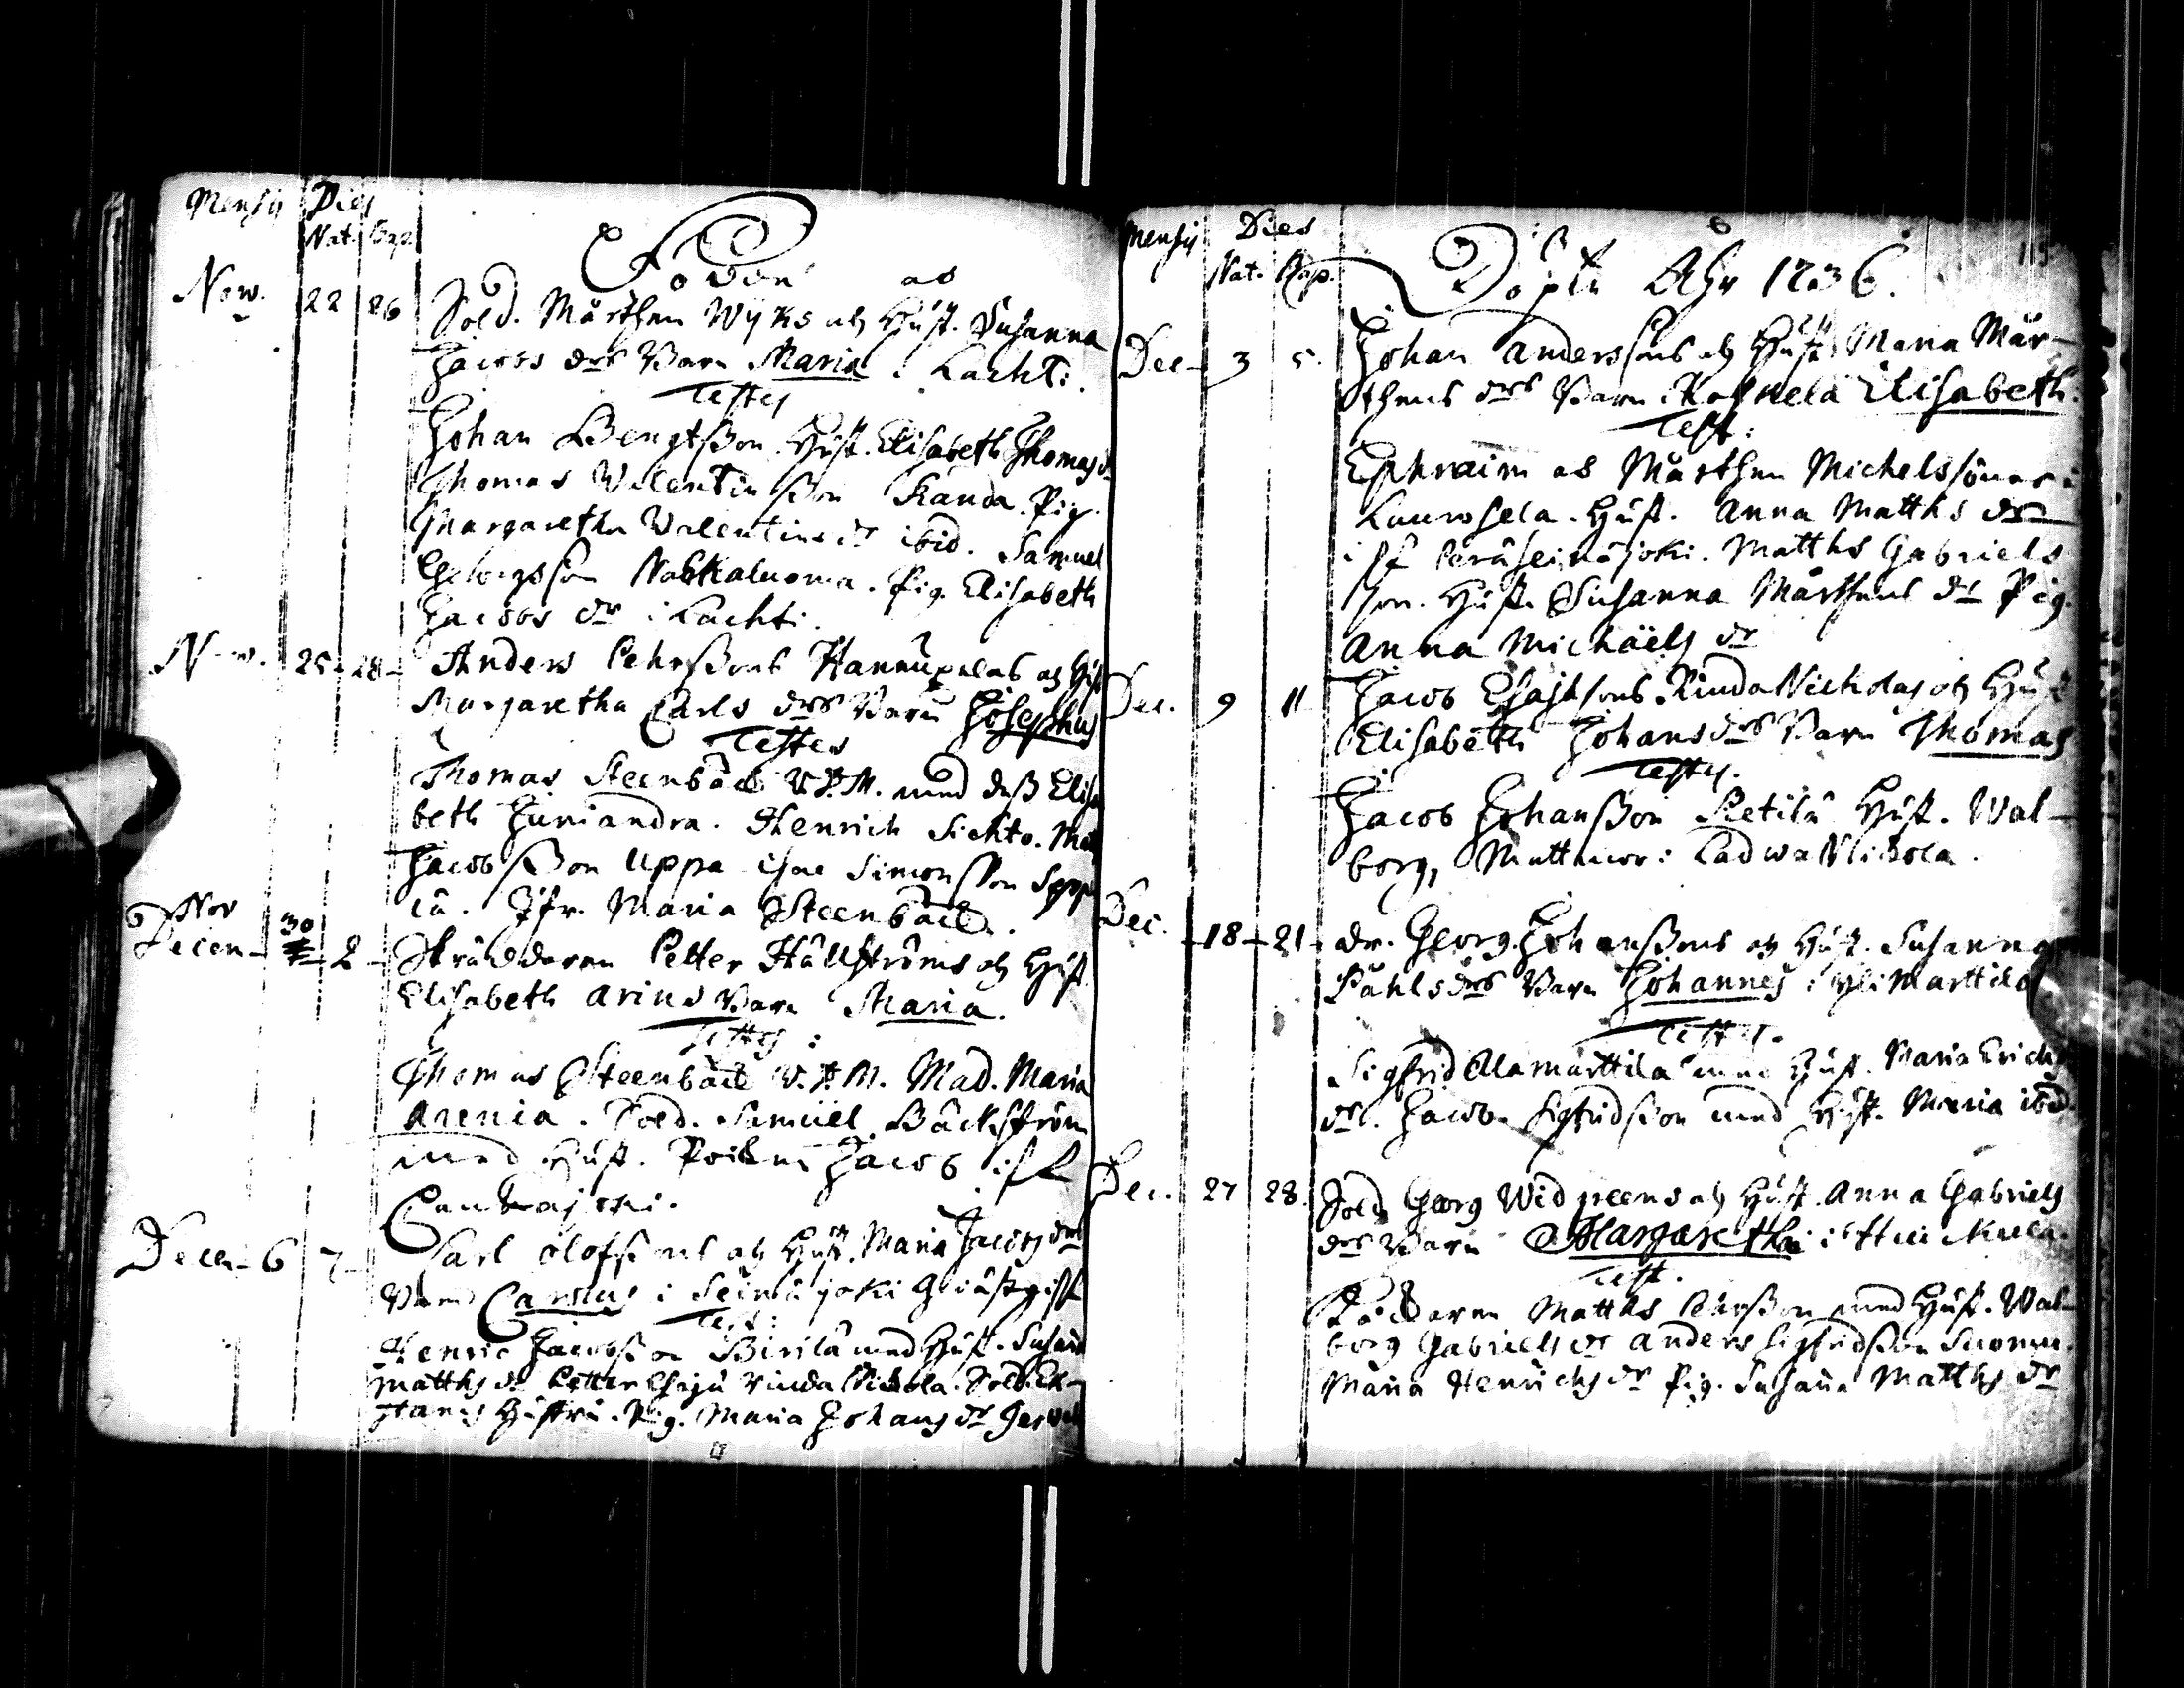 Mensis Dies
Nat. Bap.
Födde och
Nov. 22 26 Sold. Mårthen Wyks och Hust. Susanna
Jacobs drs Barn Maria i Lachti.
Testes
Johan Bengtßon Hust. Elisabeth Thomas dr
Thomas Valentinsßon Kanda. Pig.
Margaretha Valentins dr ibid. Samuel
Georgsson Nabkaluoma. Pig. Elisabeth
Jacobs dr i Lachti.
Nov. 25 28 Anders Pehrßons Hannupelas och Hust
Margaretha Carls drs Barn Josephus
Testes
Thomas Steenbäck V.D.M. med deß Elisa
beth Zuriandra. Henrich Sichto. Mat
Jacobsßon Uppa Simonsson
iä. Jfr. Maria Steenbäck.
Nov 30
Decem 2 Skräddaren Petter Hällströms och Hust
Elisabeth Arins Barn Maria.
Testes:
Thomas Steenbäck V.D.M. Mad. Maria
Arenia. Sold. Samuel Bäckström
med Hust. Jacob

Decem 6 7 Carl Olofssons och Hust. Maria Jacobs drs
Barn Carolus i Seinäjoki
Test:
Henric Jacobßon Birilä med Hust. Susan
Matths dr Petter Rinda Nickola. Sold. Ek-
Hustru. Pig. Maria Johans dr
Mensis Dies
Nat. Bap.
115
Döpte Åhr 1736.
Dec 3 5. Johan Anderssons och Hust. Maria Mår-
thens drs Barn Elisabeth.
Test:
Ephraim och Mårthen Michelssöner i
Kauroszela. Hust. Anna Matths dr
Peräseinäjoki. Matths Gabriels
son. Hust. Susanna Mårthens dr Pig.
Anna Michäels dr
Dec. 9 11 Jacob Esajæsons Rinda Nickolas och Hust
Elisabeth Johans drs Barn Thomas
Testes.
Jacob Johanßon Ketilä Hust. Wal-
borg, i Ladwa Nickola.
Dec. 18 21 dr. Georg Johanßons och Hust. Susanna
Påhls drs Barn Johannes i Yli Marttila
Testes.
Sigfrid Alamarttila med Hust. Maria Erichs
dr. Jacob Sigfridsßon med Hust. Maria ibid.
Dec. 27 28. Sold. Georg Widgreens och Hust. Anna Gabriels
drs Barn Margaretha i
Test.
Matths Pehrßon med Hust. Wal-
borg Gabriels dr Anders Sigfridsßon
Maria Henrichs dr Pig. Susanna Matths dr